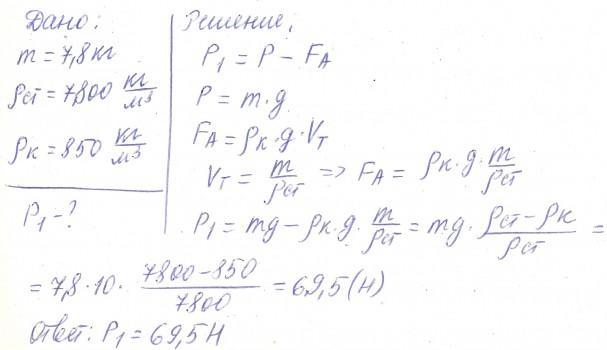 Дано:
m = 7,8 кг
ρст = 7800 кг/м³
ρк = 850 кг/м³
P₁ - ?
Решение.
P₁ = P − F_A
P = m·g
F_A = ρк·g·V_T
V_T = m/ρст => F_A = ρк·g·m/ρст
P₁ = mg − ρк·g·m/ρст = mg·(ρст − ρк)/ρст =
= 7,8·10·(7800−850)/7800 = 69,5 (Н)
Ответ: P₁ = 69,5 Н